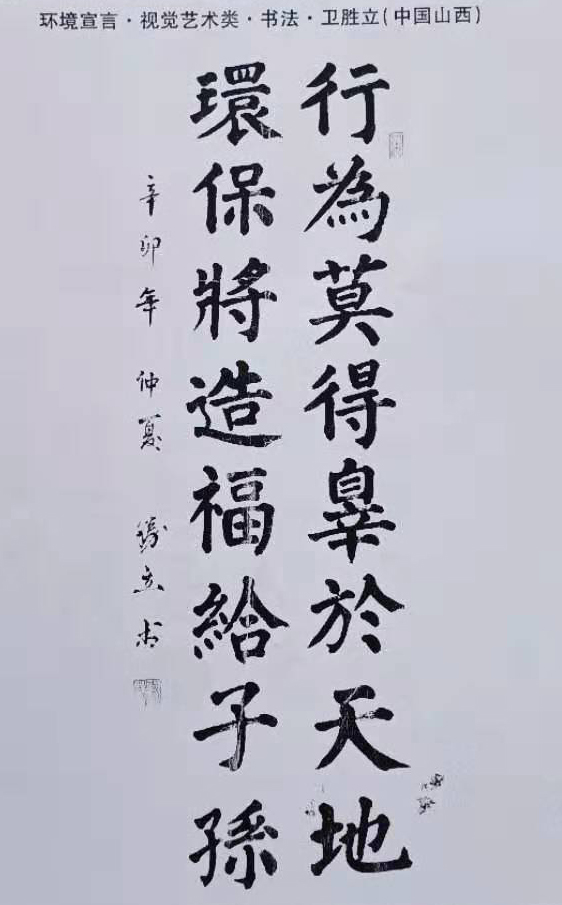 环境宣言·视觉艺术类·书法·卫胜立(中国山西)
行為莫得辠於天地
環保將造福給子孫
辛卯年 仲夏 勝立书